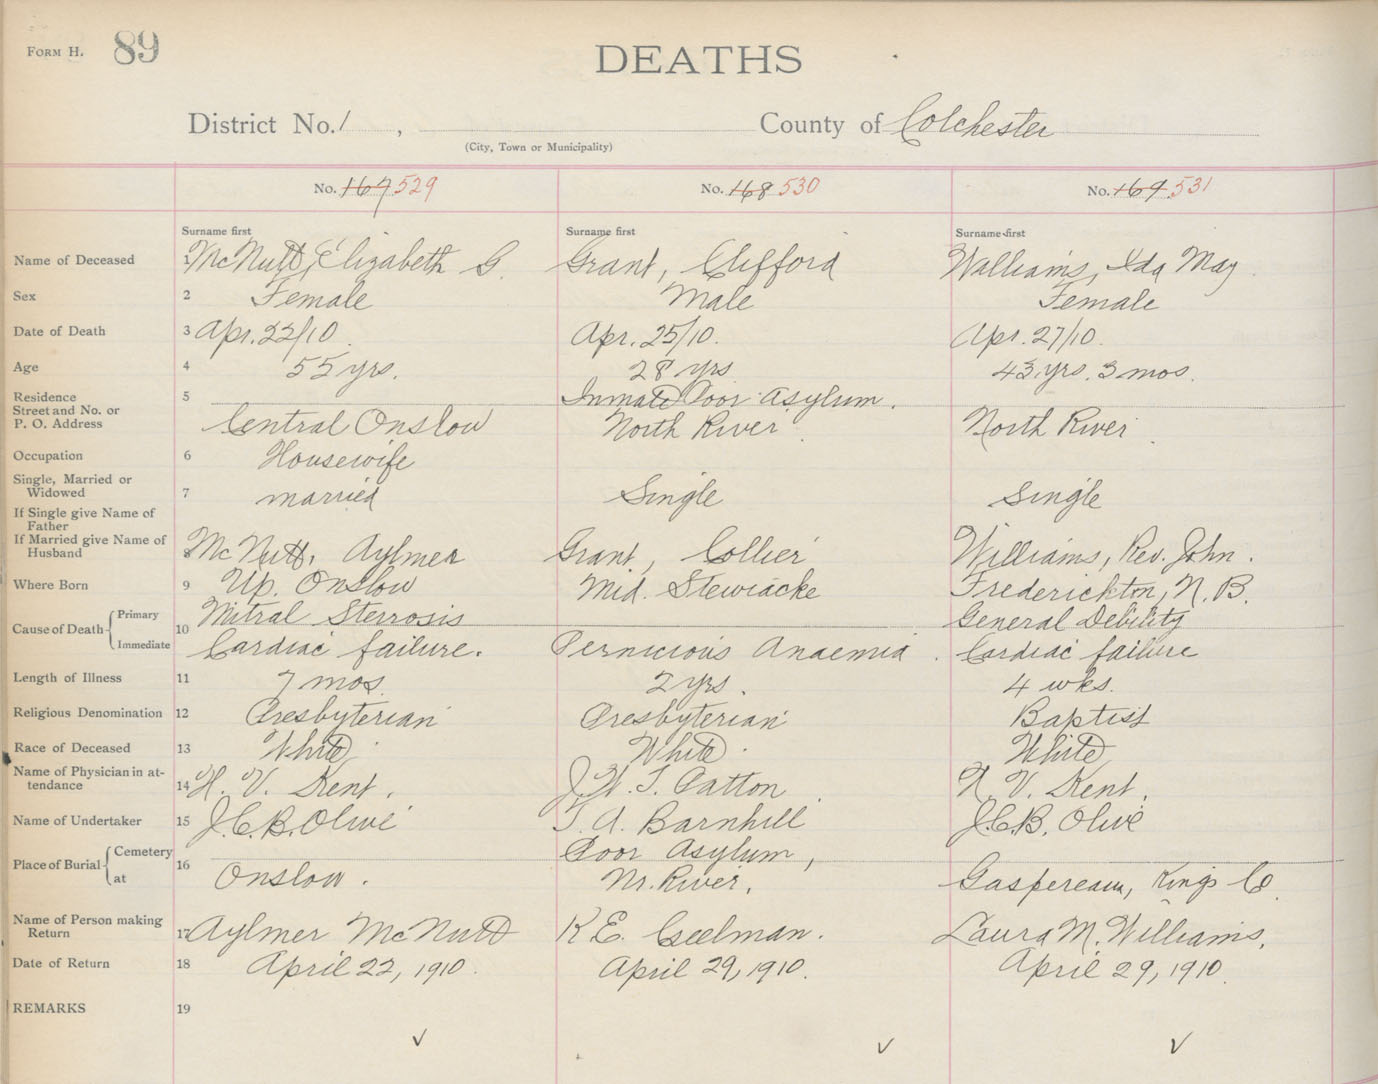 FORM H. 89
DEATHS
District No. 1 , County of Colchester
(City, Town or Municipality)
No. 167 529 No. 168 530 No. 169 531
Surname first Surname first Surname first
Name of Deceased 1 McNutt, Elizabeth G. Grant, Clifford Williams, Ida May
Sex 2 Female Male Female
Date of Death 3 Apr. 22/10. Apr. 25/10. Apr. 27/10.
Age 4 55 yrs. 28 yrs 43 yrs. 3 mos.
Residence 5 Inmate Poor Asylum.
Street and No. or
P. O. Address Central Onslow North River North River
Occupation 6 Housewife
Single, Married or
Widowed 7 married Single Single
If Single give Name of
Father
If Married give Name of
Husband 8 McNutt, Aylmer Grant, Collier Williams, Rev. John.
Where Born 9 Up. Onslow Mid. Stewiacke Frederickton, N. B.
Cause of Death Primary 10 Mitral Sterrosis General Debility
Immediate Cardiac failure. Pernicious Anaemia. Cardiac failure
Length of Illness 11 7 mos. 2 yrs. 4 wks.
Religious Denomination 12 Presbyterian Presbyterian Baptist
Race of Deceased 13 White White White
Name of Physician in at-
tendance 14 H. V. Kent. J. W. T. Patton H. V. Kent.
Name of Undertaker 15 J.C.B. Olive T. A. Barnhill J.C.B. Olive
Place of Burial Cemetery 16 Poor Asylum,
at Onslow. Nr. River. Gaspereau, Kings Co.
Name of Person making
Return 17 Aylmer McNutt K E. Geelman. Laura M. Williams.
Date of Return 18 April 22, 1910. April 29, 1910. April 29, 1910.
REMARKS 19